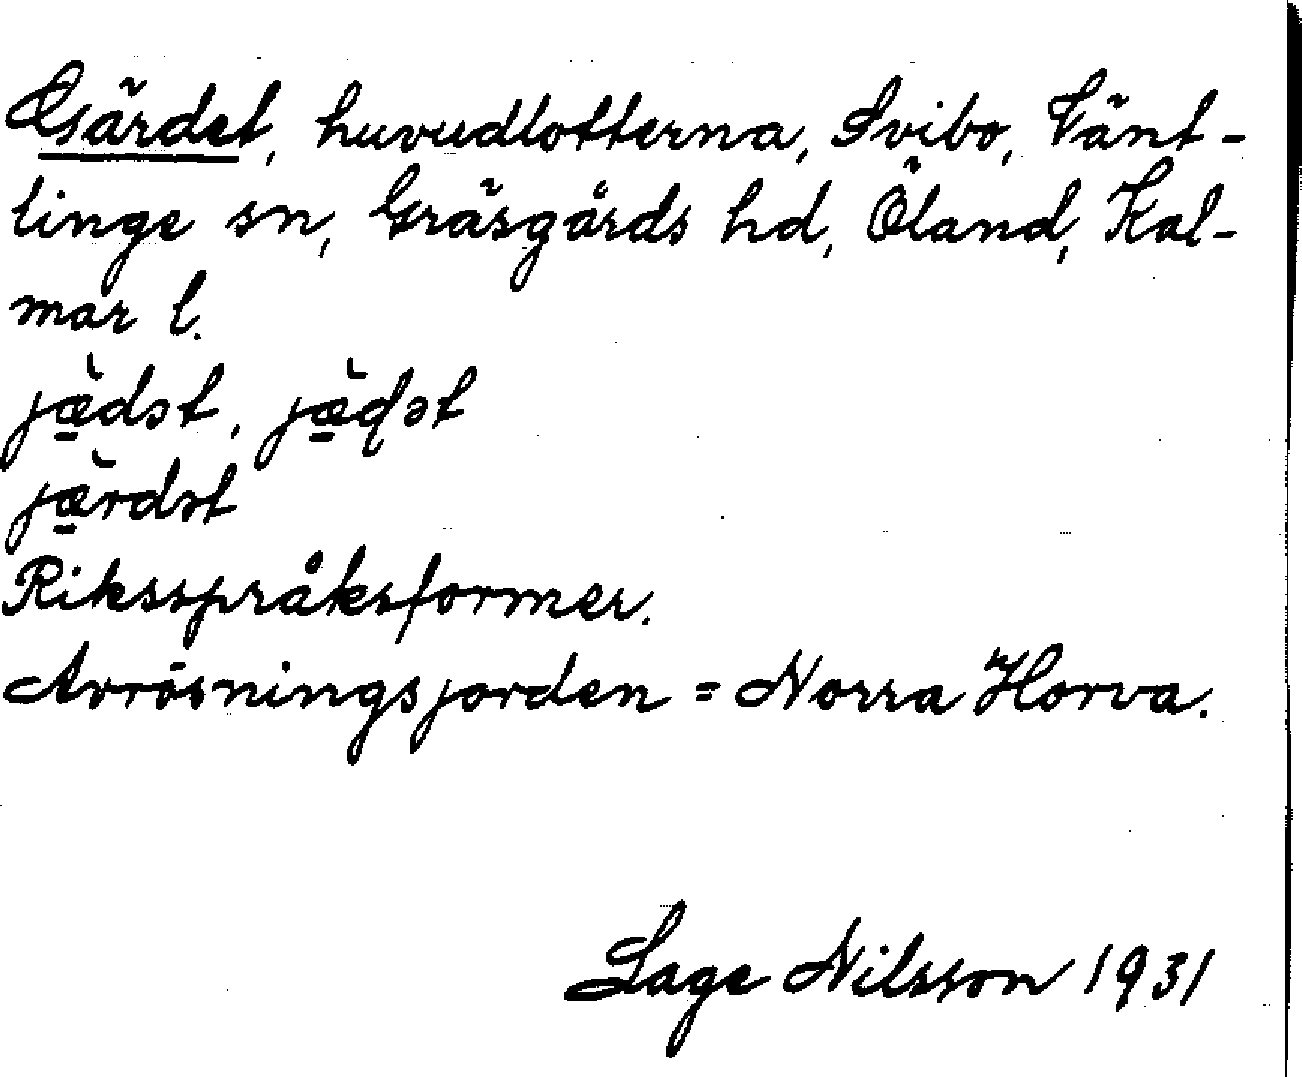 Gärdet, huvudlotterna, Svibo, Vänt-
linge sn, Gräsgårds hd, Öland, Kal-
mar l.
jæ̀dət, jæ̀ɖət
jæ̀rdət
Riksspråksformer.
Avrösningsjorden = Norra Horva.
Sage Nilsson 1931